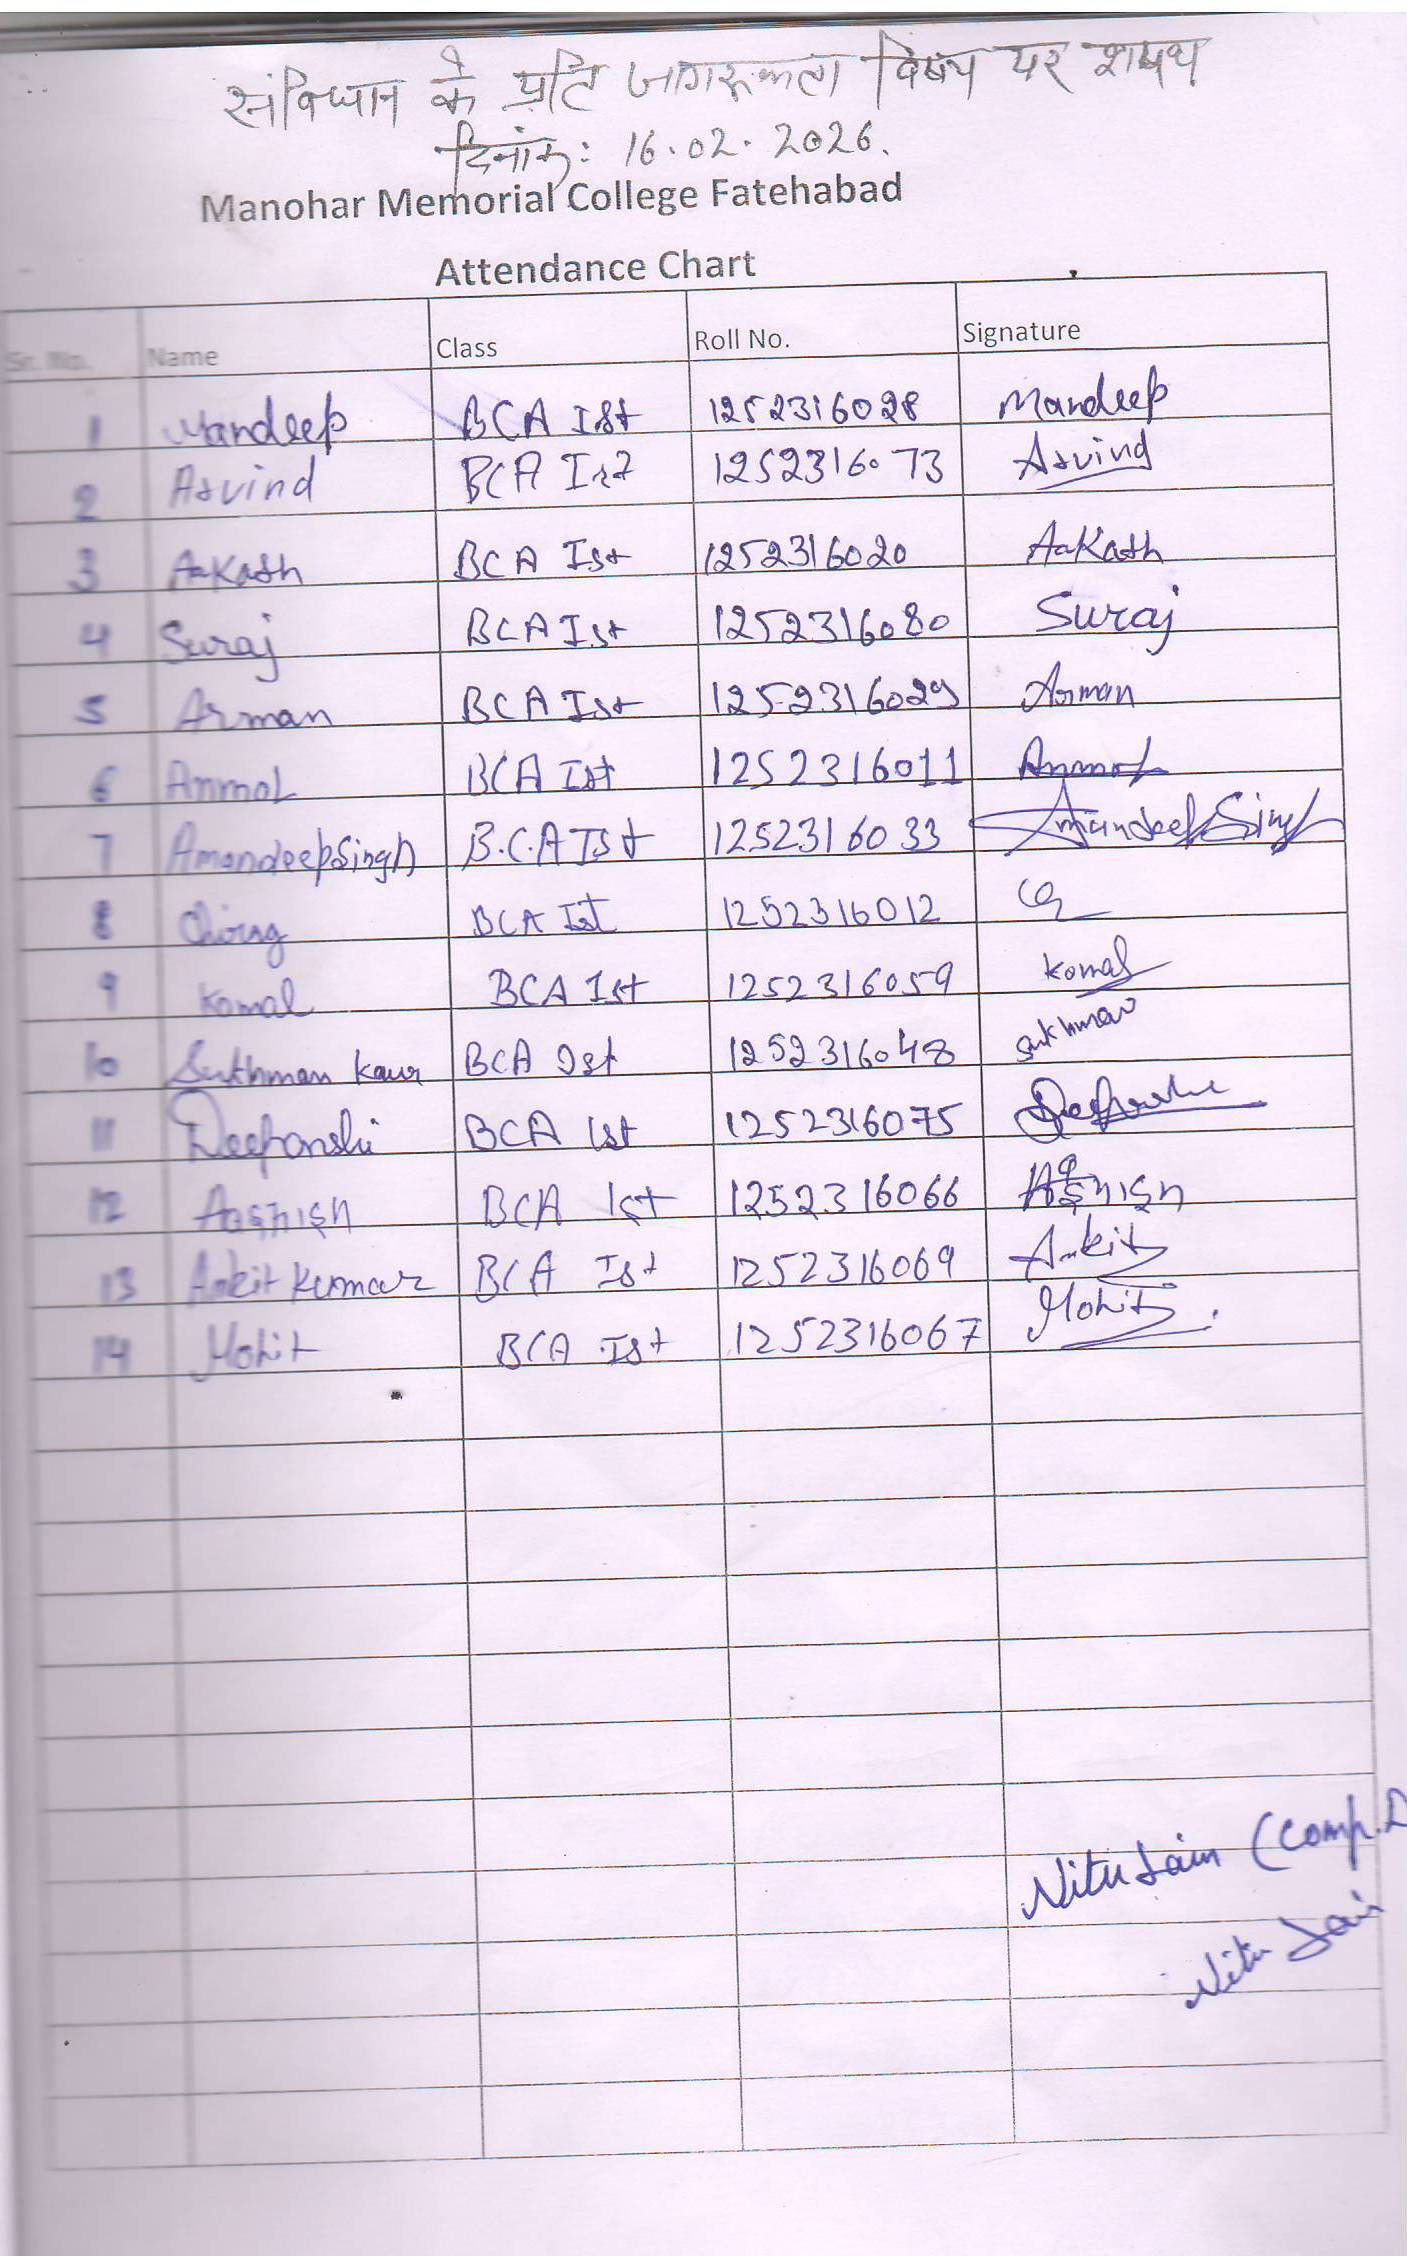 संविधान के प्रति जागरूकता विषय पर शपथ
दिनांक: 16.02.2026.
Manohar Memorial College Fatehabad
Attendance Chart
Sr. No. Name Class Roll No. Signature
1 Mandeep BCA Ist 1252316028 Mandeep
2 Arvind BCA Ist 1252316073 Arvind
3 Aakash BCA Ist 1252316020 Aakash
4 Suraj BCA Ist 1252316080 Suraj
5 Arman BCA Ist 1252316029 Arman
6 Anmol BCA Ist 1252316011 Anmol
7 Amandeep Singh B.C.A Ist 1252316033 Amandeep Singh
8 Chirag BCA Ist 1252316012
9 Komal BCA Ist 1252316059 Komal
10 Sukhman Kaur BCA Ist 1252316048 Sukhman
11 Deepanshi BCA Ist 1252316075 Deepanshi
12 Aashish BCA Ist 1252316066 Aashish
13 Ankit Kumar BCA Ist 1252316069 Ankit
14 Mohit BCA Ist 1252316067 Mohit
Nitu Jain (Comp. D
Nitu Jain